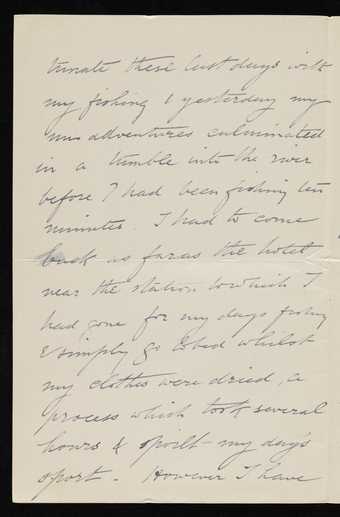 tunate these last days with
my fishing & yesterday my
mis adventures culminated
in a tumble into the river
before I had been fishing ten
minutes. I had to come
back as far as the hotel
near the station to which I
had gone for my days fishing
& simply go to bed whilst
my clothes were dried, a
process which took several
hours & spoilt my day's
sport. However I have